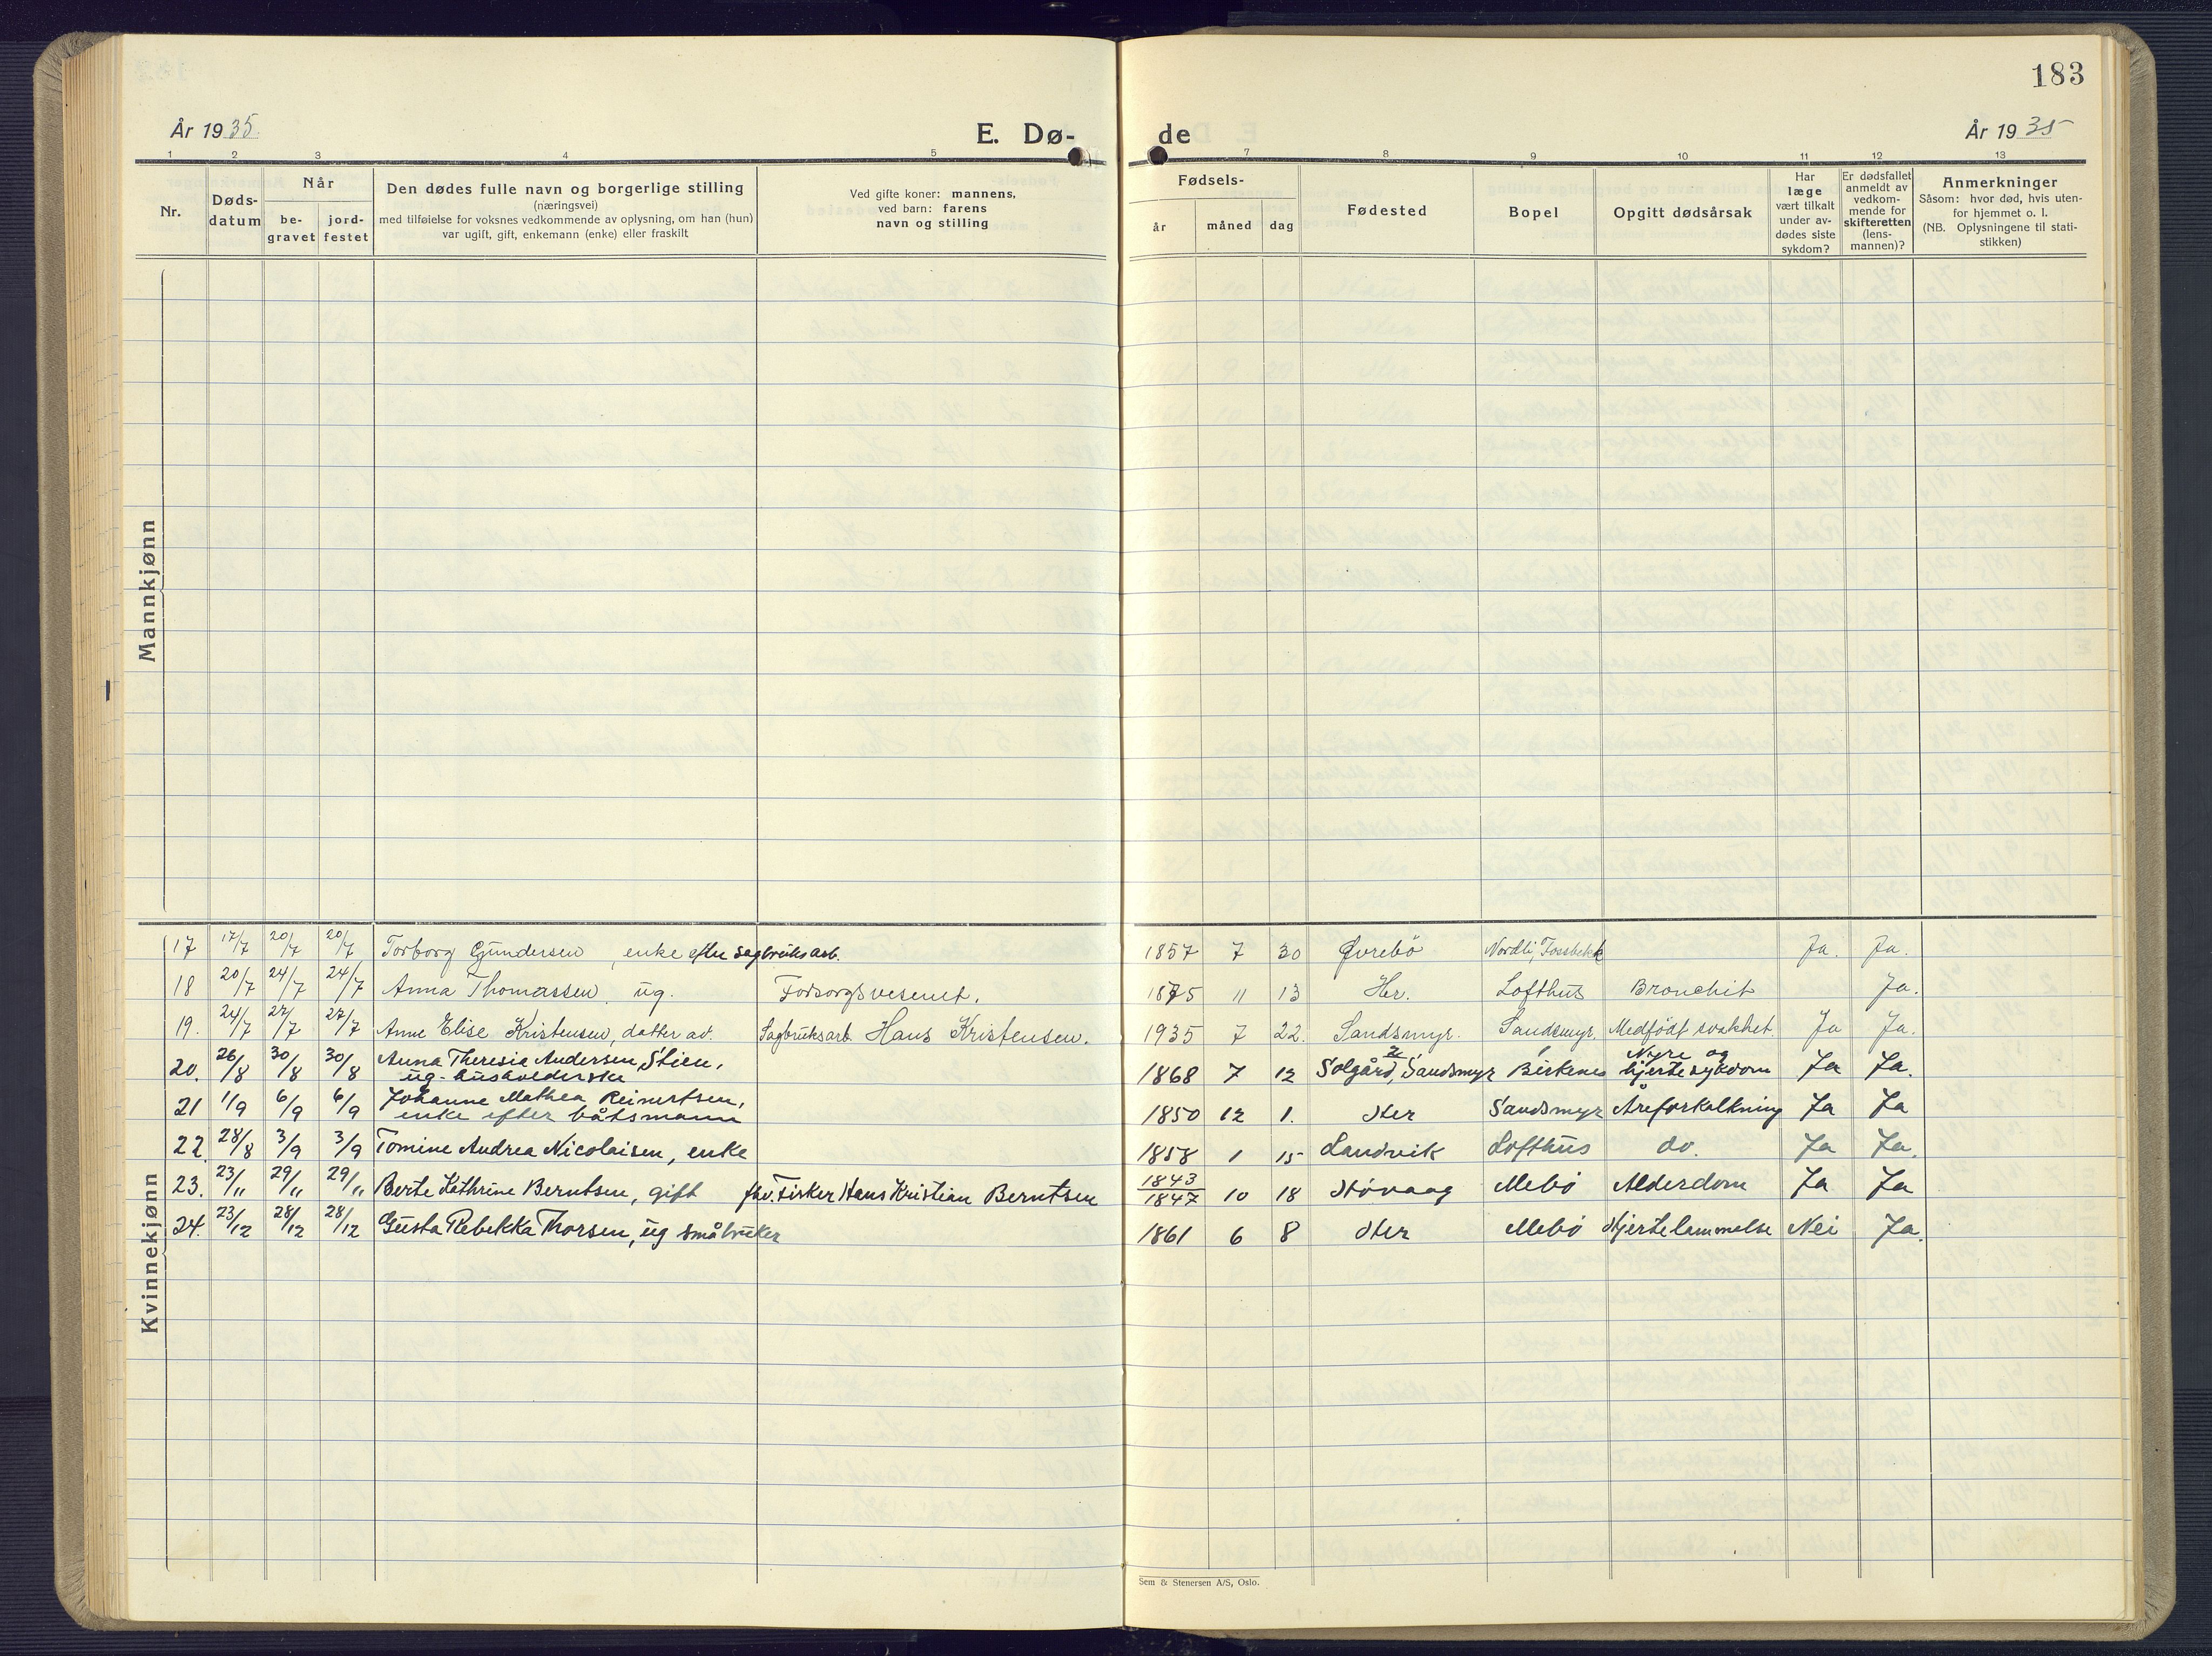 183
År 1935
E. Dø-
de
År 1935
1 2 3 4 5 7 8 9 10 11 12 13
Nr.
Døds-
datum
Når
be-
gravet
jord-
festet
Den dødes fulle navn og borgerlige stilling
(næringsvei)
med tilføielse for voksnes vedkommende av oplysning, om han (hun)
var ugift, gift, enkemann (enke) eller fraskilt
Ved gifte koner: mannens,
ved barn: farens
navn og stilling
Fødsels-
år måned dag
Fødested
Bopel
Opgitt dødsårsak
Har
læge
vært tilkalt
under av-
dødes siste
sykdom?
Er dødsfallet
anmeldt av
vedkom-
mende for
skifteretten
(lens-
mannen)?
Anmerkninger
Såsom: hvor død, hvis uten-
for hjemmet o. l.
(NB. Oplysningene til stati-
stikken)
Mannkjønn
Kvinnekjønn
17 17/7 20/7 20/7 Torborg Gundersen, enke efter sagbruksarb. 1857 7 30 Øvrebö Nordli, Fossbekk Ja. Ja.
18 20/7 24/7 24/7 Anna Thomassen, ug. Forsorgsvesenet. 1875 11 13 Her. Lofthus Bronchit Ja.
19. 24/7 27/7 27/7 Anne Elise Kristensen, datter av. Sagbruksarb. Hans Kristensen. 1935 7 22. Sandsmyr. Sandsmyr. Medfödt svakhet. Ja Ja.
20. 26/8 30/8 30/8 Anna Theresia Andersen, Stien,
ug. husholderske 1868 7 12 Solgård, Sandsmyr Birkenes Nyre og
hjertesykdom Ja Ja.
21 1/9 6/9 6/9 Johanne Mathea Reinertsen,
enke efter båtsmann 1850 12 1. Her Sandsmyr Åreforkalkning Ja Ja
22. 28/8 3/9 3/9 Tomine Andrea Nicolaisen, enke 1858 1 15 Landvik Lofthus do. Ja Ja.
23. 23/11 29/11 29/11 Berte Kathrine Berntsen, gift fhv. Fisker Hans Kristian Berntsen 1843
1847 10 18 Hövaag Mebö Alderdom Ja Ja
24. 23/12 28/12 28/12 Gusta Rebekka Thorsen, ug småbruker 1861 6 8 Her Mebö Hjertelammelse Nei Ja.
Sem & Stenersen A/S, Oslo.